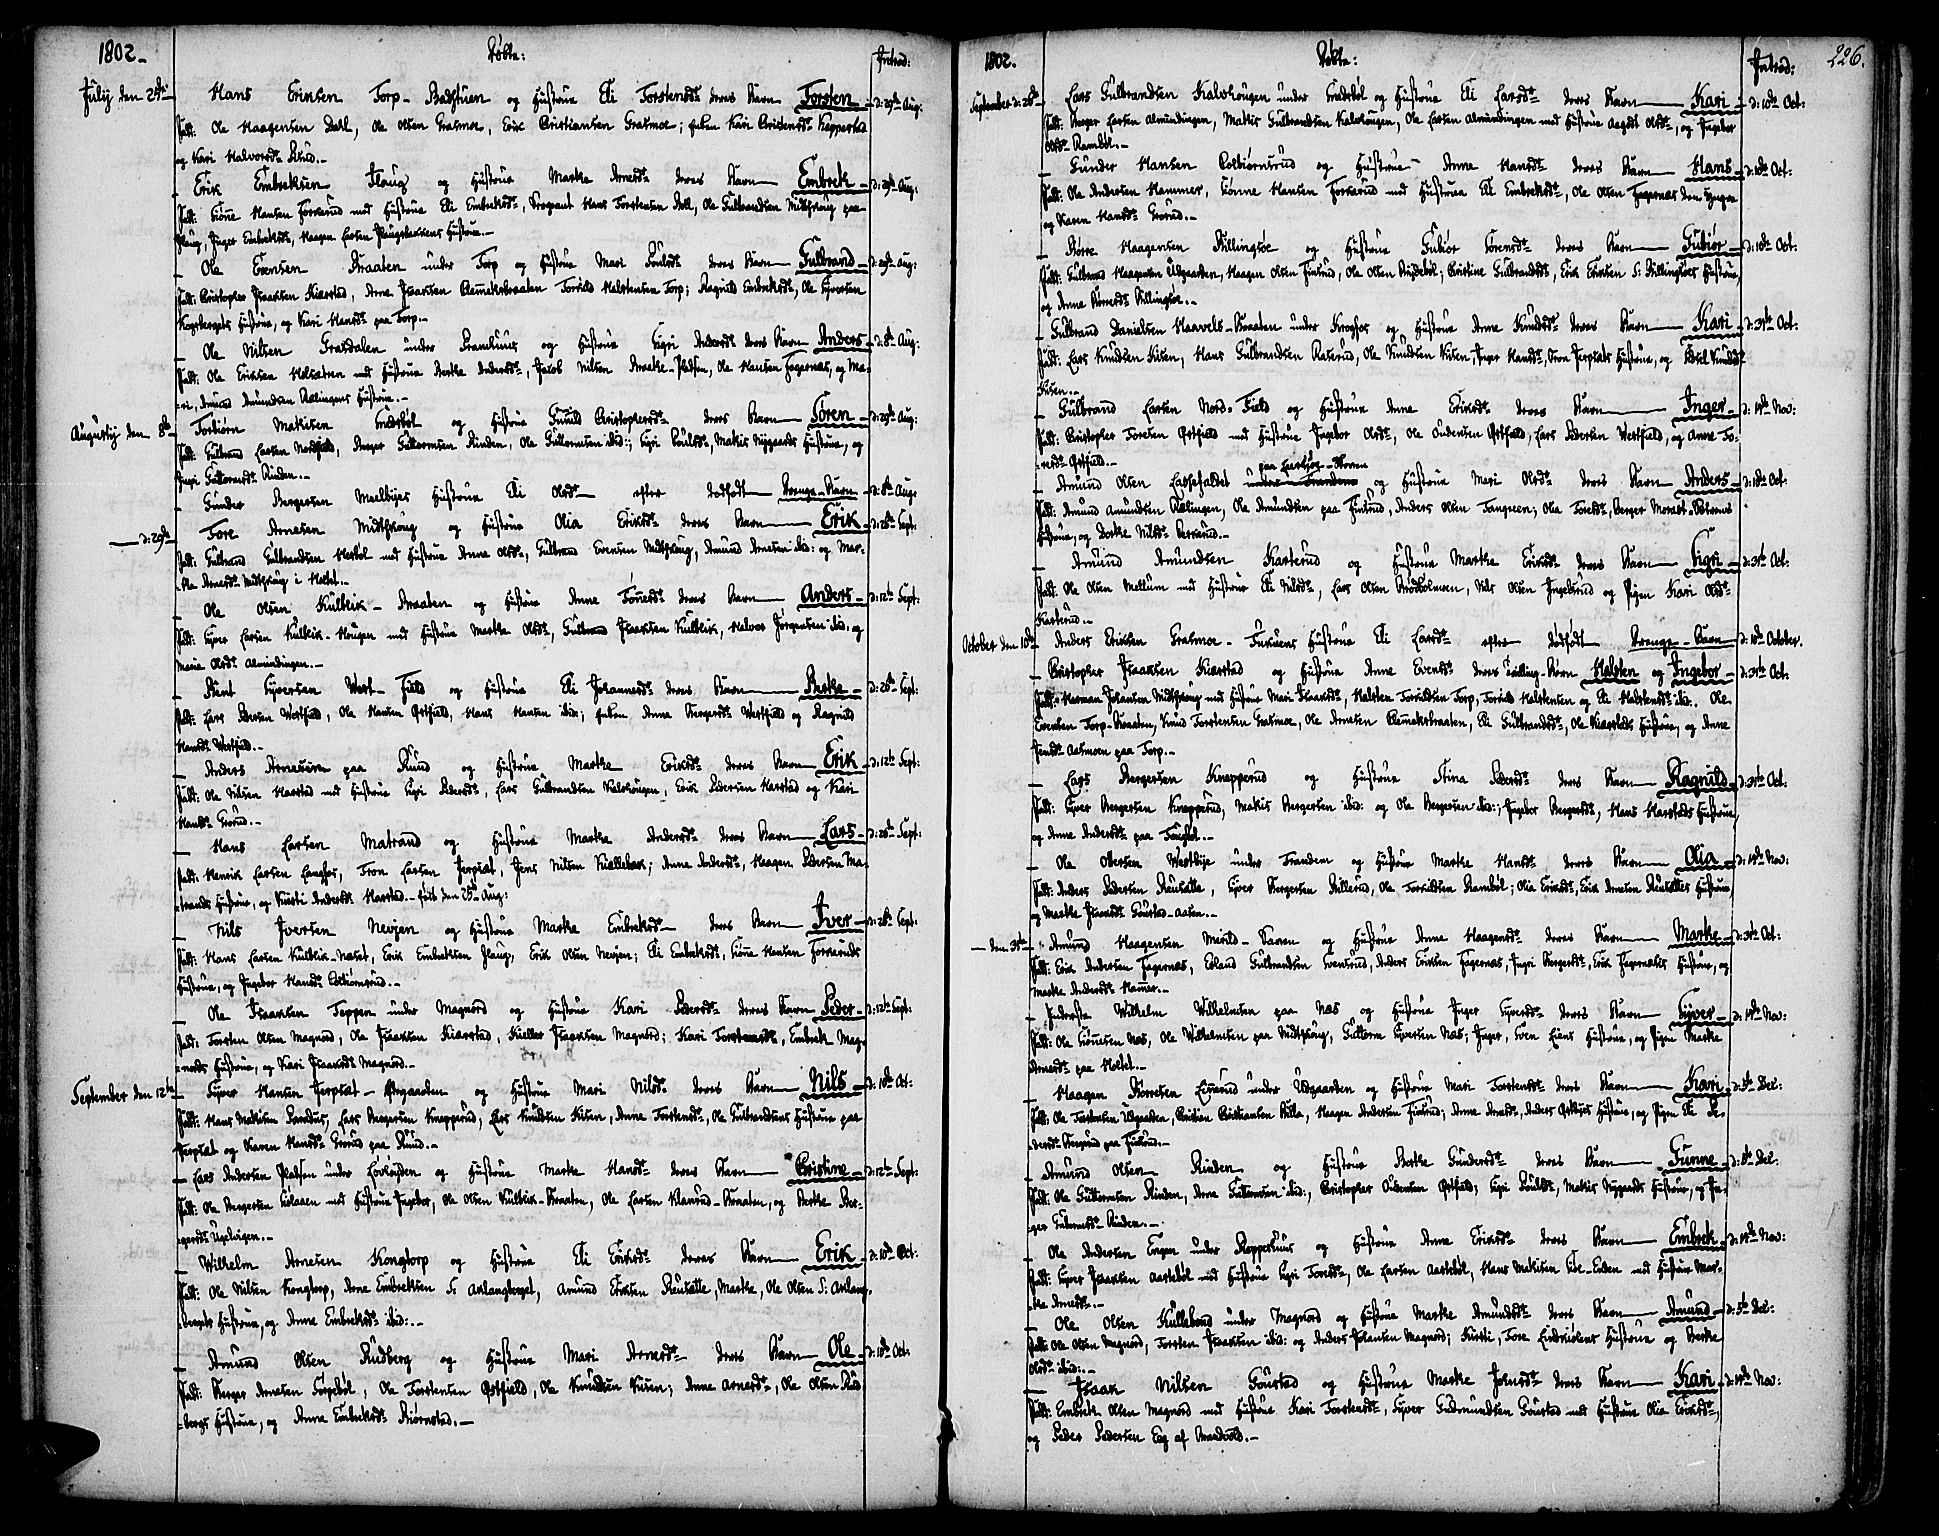 1802.
Døbte:
Introd:
July den 25de Hans Eriksen Torp-Badstuen og Hustrue Eli Torstensdr deres Barn Torsten d: 29de Aug:
Fadd: Ole Haagensen Dahl, Ole Olsen Grasmoe, Erik Christiansen Grasmoe; Kari Christensdr Kapperstad
og Kari Halvorsdr
Erik Embreksen Haug og Hustrue Marthe Arnesdr deres Barn Embrek d: 29de Aug:
Fadd: Tønne Hansen Forserud med Hustrue Eli Embreksdr, Sergeant Hans Torstensen Dahl, Ole Gulbrandsen Midtskoug paa
Haug, Inger Embreksdr, Haagen Larsen Haugsbakkens Hustrue.
Ole Evensen Braaten under Torp og Hustrue Mari Poulsdr deres Barn Gulbrand d: 29de Aug:
Fadd: Christopher Isaaksen Kierstad, Arne Isaaksen Torkild Halstensen Torp; Ragnild Embreksdr, Ole Syversen
Hustrue, og Kari Hansdr paa Torp.
Ole Nilsen Grasdalen under og Hustrue Sigri Andersdr deres Barn Anders d: 8de Aug:
Fadd: Ole Eriksen med Hustrue Berthe Andersdr, Jacob Nilsen Braathe-Pladsen, Ole Hansen Fagernæs, og Ma-
ri, Amund Amundsen Rælingens Hustrue.
Augustij den 8de Torbiørn Mathisen og Hustrue Gunild Christophersdr deres Barn Søren d: 29de Aug:
Fadd: Gulbrand Larsen Nordfield, Guttormsen Rinden, Ole Guttormsen ibid:, Sigri Poulsdr, Mathis Nygaards Hustrue, og
Ingri Guttormsdr Rinden.
Gunder Bergersen Hustrue Eli Olsdr efter dødfødt Drenge-Barn d: 8de Aug:
d: 29de Tore Arnesen Midtskoug og Hustrue Olia Eriksdr deres Barn Erik d: 26de Sept:
Fadd: Gulbrand Gulbrandsen med Hustrue Anne Olsdr, Gulbrand Evensen Midtskoug, Amund Arnesen ibid: og Mar-
the Arnesdr Midtskoug i Holtet.
Ole Olsen Kulblik-Braaten og Hustrue Anne Tønnesdr deres Barn Anders d: 12te Sept:
Fadd: Syver Larsen Kulblik-Hougen med Hustrue Marthe Olsdr, Gulbrand Isaaksen Kulblik, Halvor Jørgensen ibid: og
Maria Olsdr Almindingen.
Syversen West-Field og Hustrue Eli Johannesdr deres Barn Berthe d: 26de Sept:
Fadd: Lars Pedersen Westfield, Ole Hansen Østfield, Hans Hansen ibid; Anne Bergersdr Westfield og Ragnild
Hansdr Westfield.
Anders Arnesen paa Rund og Hustrue Marthe Eriksdr deres Barn Erik d: 12te Sept:
Fadd: Ole Nilsen Harstad med Hustrue Sigri Pedersdr, Lars Gulbrandsen Kalvhougen, Erik Pedersen Harstad og Kari
Hansdr Grorud.
Hans Larsen Matrand og Hustrue Marthe Andersdr deres Barn Lars d: 26de Sept:
Fadd: Henrik Larsen Langsør, Tron Larsen Jerpset, Jens Nilsen Kiellebæk; Anne Andersdr, Haagen Pedersen Ma-
trands Hustrue, og Kirsti Andersdr Harstad. født den 25de Aug:
Nils Iversen Nevjen og Hustrue Marthe Embreksdr deres Barn Iver d: 26de Sept:
Fadd: Hans Larsen Kulblik-Næset, Erik Embreksen Haug, Erik Olsen Nevjen; Eli Embreksdr, Tønne Hansen Forseruds
Hustrue, og Ingebor Hansdr
Ole Isaaksen Teppen under Magnord og Hustrue Kari Pedersdr deres Barn Peder d: 12te Sept:
Fadd: Torsten Olsen Magnord, Ole Isaaksen Kierstad, Isaaksen Magnord; Kari Torstensdr, Embrek Mag-
nords Hustrue, og Kari Isaaksdr Magnord.
September den 12te Syver Hansen Jerpset-Østgaarden og Hustrue Mari Nilsdr deres Barn Nils d: 10de Oct:
Fadd: Hans Mathisen Lars Bergersen Knapperud, Lars Knudsen Kiten, Anne Torstensdr, Ole Gulbrandsens Hustrue paa
Jerpset og Karen Hansdr Grorud paa Rund.
Lars Andersen Pladsen under og Hustrue Marthe Hansdr deres Barn Christine d: 12te Sept:
Fadd: Ole Bergersen med Hustrue Ingebor, Ole Olsen Kulblik-Braaten, Ole Larsen Klanrud-Braaten, og Berthe Ber-
gersdr Ugelvigen.
Wilhelm Arnesen Kongtorp og Hustrue Eli Eriksdr deres Barn Erik d: 10de Oct:
Fadd: Ole Nilsen Kongtorp, Arne Embreksen S: Aklangberget, Amund Eriksen Reutalle, Marthe, Ole Olsen S: Aklang-
bergets Hustrue, og Anne Embreksdr ibid:
Amund Olsen Rudberg og Hustrue Mari Arnesdr deres Barn Ole d: 10de Oct:
Fadd: Berger Arnesen Sørpebøl, Ole Torstensen Østfield, Ole Knudsen Viken; Anne Arnesdr, Ole Olsen Rud-
bergs Hustrue, og Anne Embreksdr Biørnstad.
226.
1802.
Døbte:
Introd:
September d: 26de Lars Gulbrandsen Kalvhougen under og Hustrue Eli Larsdr deres Barn Kari d: 10de Oct:
Fadd: Berger Larsen Almindingen, Mathis Gulbrandsen Kalvhougen, Ole Larsen Almindingen med Hustrue Aagodt Olsdr, og Ingebor
Olsdr Rambøl.
Gunder Hansen og Hustrue Anne Hansdr deres Barn Hans d: 10de Oct:
Fadd: Ole Andersen Hammer, Tønne Hansen Forserud med Hustrue Eli Embreksdr, Ole Olsen Fagernæs den yngre
og Karen Hansdr Grorud.
Børre Haagensen Killingsøe og Hustrue Gubiør Sørensdr deres Barn Gubiør d: 10de Oct:
Fadd: Gulbrand Haagensen Udgaarden, Haagen Olsen Finsrud, Ole Olsen Christine Gulbrandsdr, Erik Eriksen S: Killingsøes Hustrue,
og Anne Børresdr Killingsøe.
Gulbrand Danielsen Haavels-Braaten under Krogfos og Hustrue Anne Knudsdr deres Barn Kari d: 31te Oct:
Fadd: Lars Knudsen Kiten, Hans Gulbrandsen Raterud, Ole Knudsen Kiten, Inger Hansdr, Tron Jerpsets Hustrue, og Sidsel Knudsdr
Kiten.
Gulbrand Larsen Nord-Field og Hustrue Anne Eriksdr deres Barn Inger d: 14de Nov:
Fadd: Christopher Toresen Østfield med Hustrue Ingebor Olsdr, Ole Oudensen Østfield, Lars Pedersen Westfield, og Anne To-
resdr Østfield.
Amund Olsen paa og Hustrue Mari Olsdr deres Barn Anders d: 10de Oct:
Fadd: Amund Amundsen Rælingen, Ole Amundsen paa Finsrud, Anders Olsen Tangneen; Olia Toresdr, Berger Morast-
Hustrue, og Dorthe Nilsdr
Amund Amundsen Kasterud og Hustrue Marthe Eriksdr deres Barn Sigri d: 31te Oct:
Fadd: Ole Olsen Mellum med Hustrue Eli Nilsdr, Lars Olsen Brødbolmoen, Nils Olsen Ingelsrud og Pigen Kari Olsdr
Kasterud.
October den 10de Anders Eriksen Grasmoe-Furuens Hustrue Eli Larsdr efter dødfødt Drenge-Barn d: 10de October.
Christopher Isaaksen Kierstad og Hustrue Anne Evensdr deres Tvilling-Børn Halsten og Ingebor d: 31te Oct:
Fadd: Herman Johansen Midtskoug med Hustrue Mari Isaaksdr, Halsten Torkildsen Torp, Torkild Halstensen og Eli Halstensdr ibid:. Ole
Evensen Torp-Braaten, Knud Torstensen Grasmoe, Ole Arnesen Eli Gulbrandsdr, Ole Kierstads Hustrue, og Anne
Jensdr Aasmoen paa Torp.
Lars Bergersen Knapperud og Hustrue Stina Pedersdr deres Barn Ragnild d: 31te Oct:
Fadd: Syver Bergersen Knapperud, Mathis Bergersen ibid: og Ole Bergersen ibid:; Ingebor Bergersdr, Hans Harstads Hustrue,
og Anne Andersdr paa
Ole Olsersen Westbye under Trandem og Hustrue Marthe Hansdr deres Barn Olia d: 14de Nov:
Fadd: Anders Pedersen Reutalle, Syver Bergersen Ole Torkildsen Rambøl; Olia Eriksdr, Erik Arnesen Reutalles Hustrue,
og Marthe Hansdr Goustad-Aasen.
den 31te Amund Haagensen og Hustrue Anne Haagensdr deres Barn Marthe d: 31te Oct:
Fadd: Erik Andersen Fagernæs, Erland Gulbrandsen Evensrud, Anders Eriksen Fagernæs, Ingri Bergersdr, Erik Fagernæses Hustrue, og
Marthe Andersdr Hammer.
Inderste Wilhelm Wilhelmsen paa Næs og Hustrue Inger Syversdr deres Barn Syver d: 14de Nov:
Fadd: Ole Tønnesen Næs, Ole Wilhelmsen paa Midtskoug, Guttorm Syversen Næs; Inger, Sven Liens Hustrue, og Pigen Marthe
Arnesdr paa Holtet.
Haagen Børresen under Udgaarden og Hustrue Mari Torstensdr deres Barn Kari d: 5te Dec:
Fadd: Ole Torstensen Udgaarden, Christian Christiansen Haagen Andersen Finsrud; Anne Arnesdr, Anders Østbyes Hustrue, og Pigen Eli Pe-
dersdr paa Finsrud.
Amund Olsen Rinden og Hustrue Berthe Gundersdr deres Barn Gunne d: 5te Dec:
Fadd: Ole Guttormsen Rinden, Arne Guttormsen ibid:, Christopher Oudensen Østfield; Sigri Poulsdr, Mathis Nygaards Hustrue, og In-
ger Guttormsdr Rinden.
Ole Andersen Engen under og Hustrue Anne Eriksdr deres Barn Embrek d: 14de Nov:
Fadd: Syver Isaaksen Aastebøl med Hustrue Sigri Toresdr, Ole Larsen Aastebøl, Hans Mathisen Eide-Enden med Hustrue Mar-
the Arnesdr.
Ole Olsen Kullebond under Magnord og Hustrue Marthe Amundsdr deres Barn Amund d: 5te Dec:
Fadd: Ole Olsen Magnord, Torsten Isaaksen ibid: og Anders Johansen Magnord; Kirsti, Tore Hustrue og Berthe
Olsdr ibid:
Isaak Nilsen Goustad og Hustrue Marthe Johnsdr deres Barn Kari d: 14de Nov:
Fadd: Embrek Olsen Magnord med Hustrue Kari Torstensdr, Syver Gudmundsen Goustad med Hustrue Olia Eriksdr,
og Peder Pedersen Eeg af Brandvold.